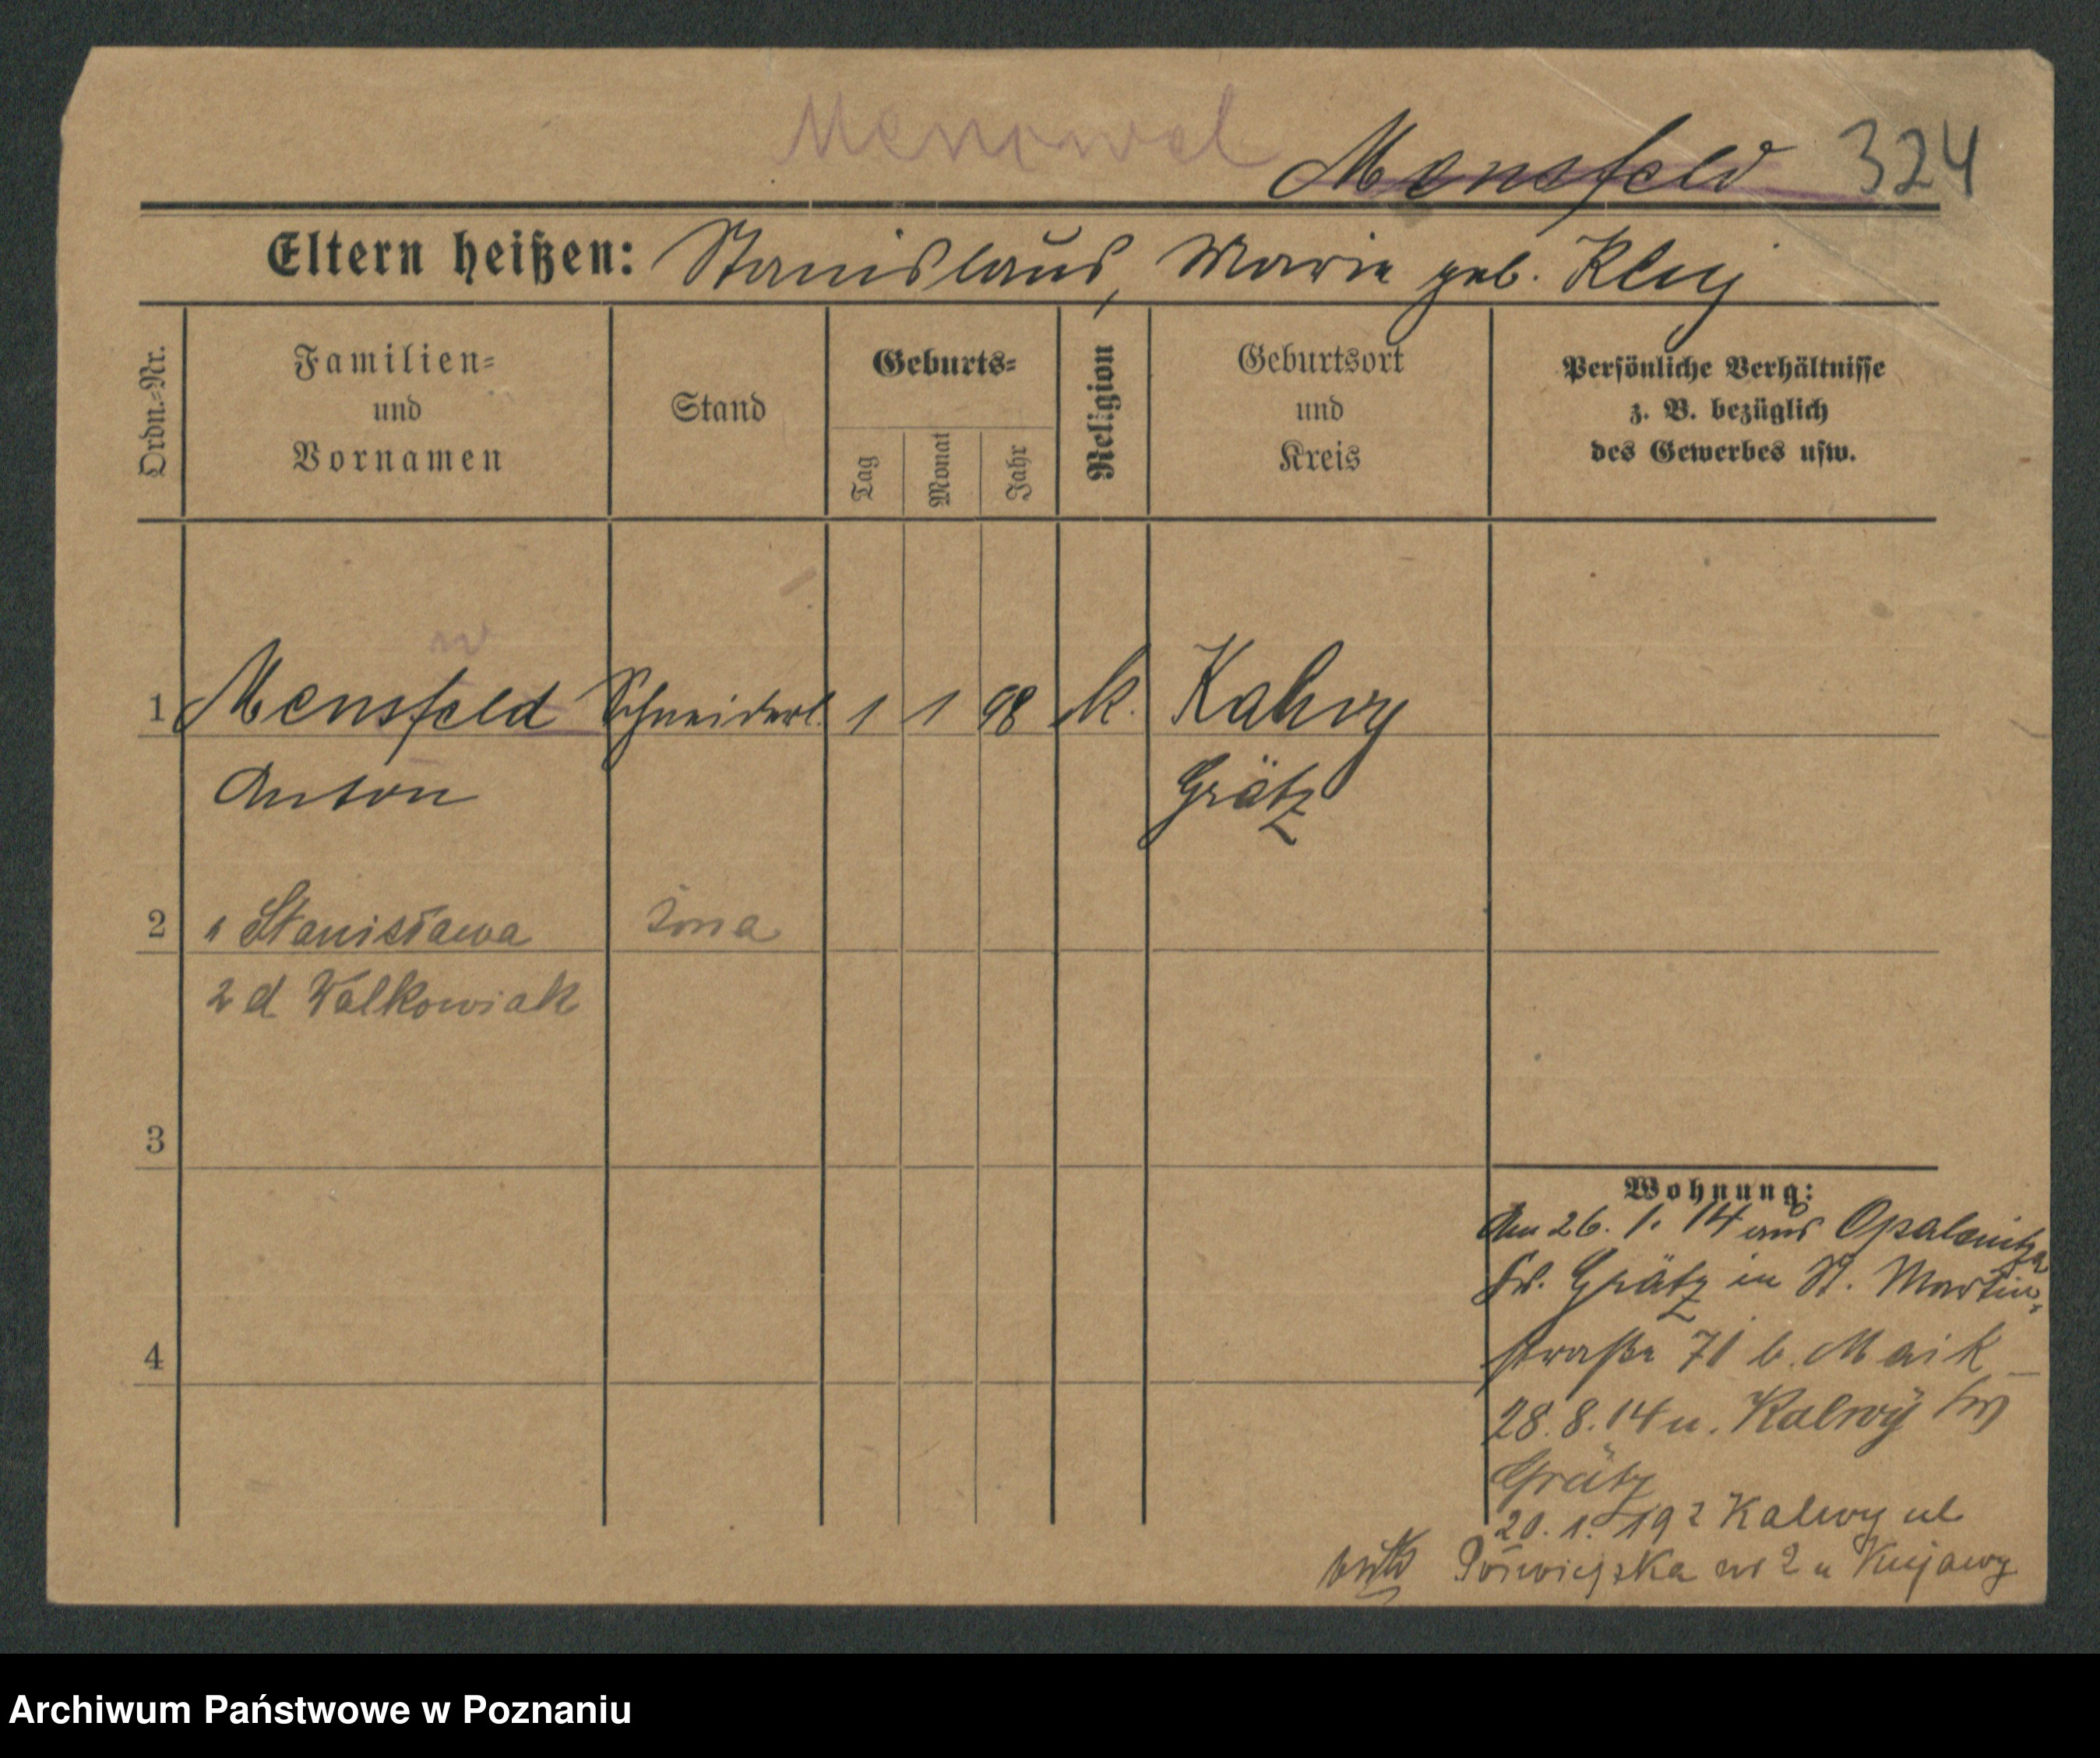 Mensfeld 324
Eltern heißen: Stanislaus, Marie geb. Kluj
Ordn.-Nr.
Familien-
und
Vornamen
Stand
Geburts-
Tag
Monat
Jahr
Religion
Geburtsort
und
Kreis
Persönliche Verhältnisse
z. B. bezüglich
des Gewerbes usw.
w
1 Mensfeld Schneiderl. 1 1 98 k. Kalwy
Anton Grätz
2 " Stanisława żona
z d Walkowiak
3
Wohnung:
Am 26. 1. 14 aus Opalenitza
Kr. Grätz in St. Martin-
straße 71 b. Maik
4
28. 8. 14 n. Kalwy Kr
Grätz
20. 1. 19 Kalwy ul
nr 2 u Kujawy
Archiwum Państwowe w Poznaniu